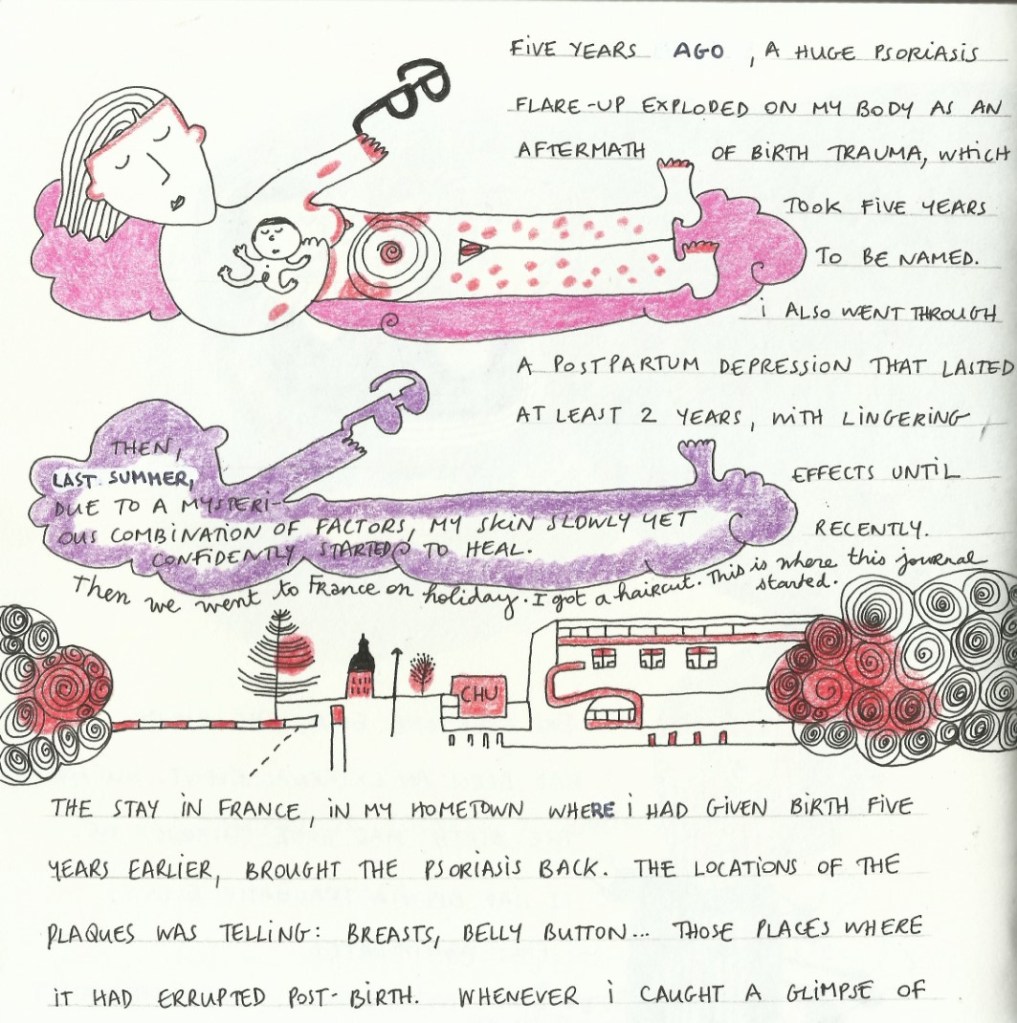 FIVE YEARS AGO, A HUGE PSORIASIS
FLARE-UP EXPLODED ON MY BODY AS AN
AFTERMATH OF BIRTH TRAUMA, WHICH
TOOK FIVE YEARS
TO BE NAMED.
I ALSO WENT THROUGH
A POSTPARTUM DEPRESSION THAT LASTED
AT LEAST 2 YEARS, WITH LINGERING
EFFECTS UNTIL
RECENTLY.
THEN,
LAST SUMMER,
DUE TO A MYSTERI-
OUS COMBINATION OF FACTORS, MY SKIN SLOWLY YET
CONFIDENTLY STARTED TO HEAL.
Then we went to France on holiday. I got a haircut. This is where this journal
started.
CHU
THE STAY IN FRANCE, IN MY HOMETOWN WHERE I HAD GIVEN BIRTH FIVE
YEARS EARLIER, BROUGHT THE PSORIASIS BACK. THE LOCATIONS OF THE
PLAQUES WAS TELLING: BREASTS, BELLY BUTTON... THOSE PLACES WHERE
IT HAD ERRUPTED POST-BIRTH. WHENEVER I CAUGHT A GLIMPSE OF